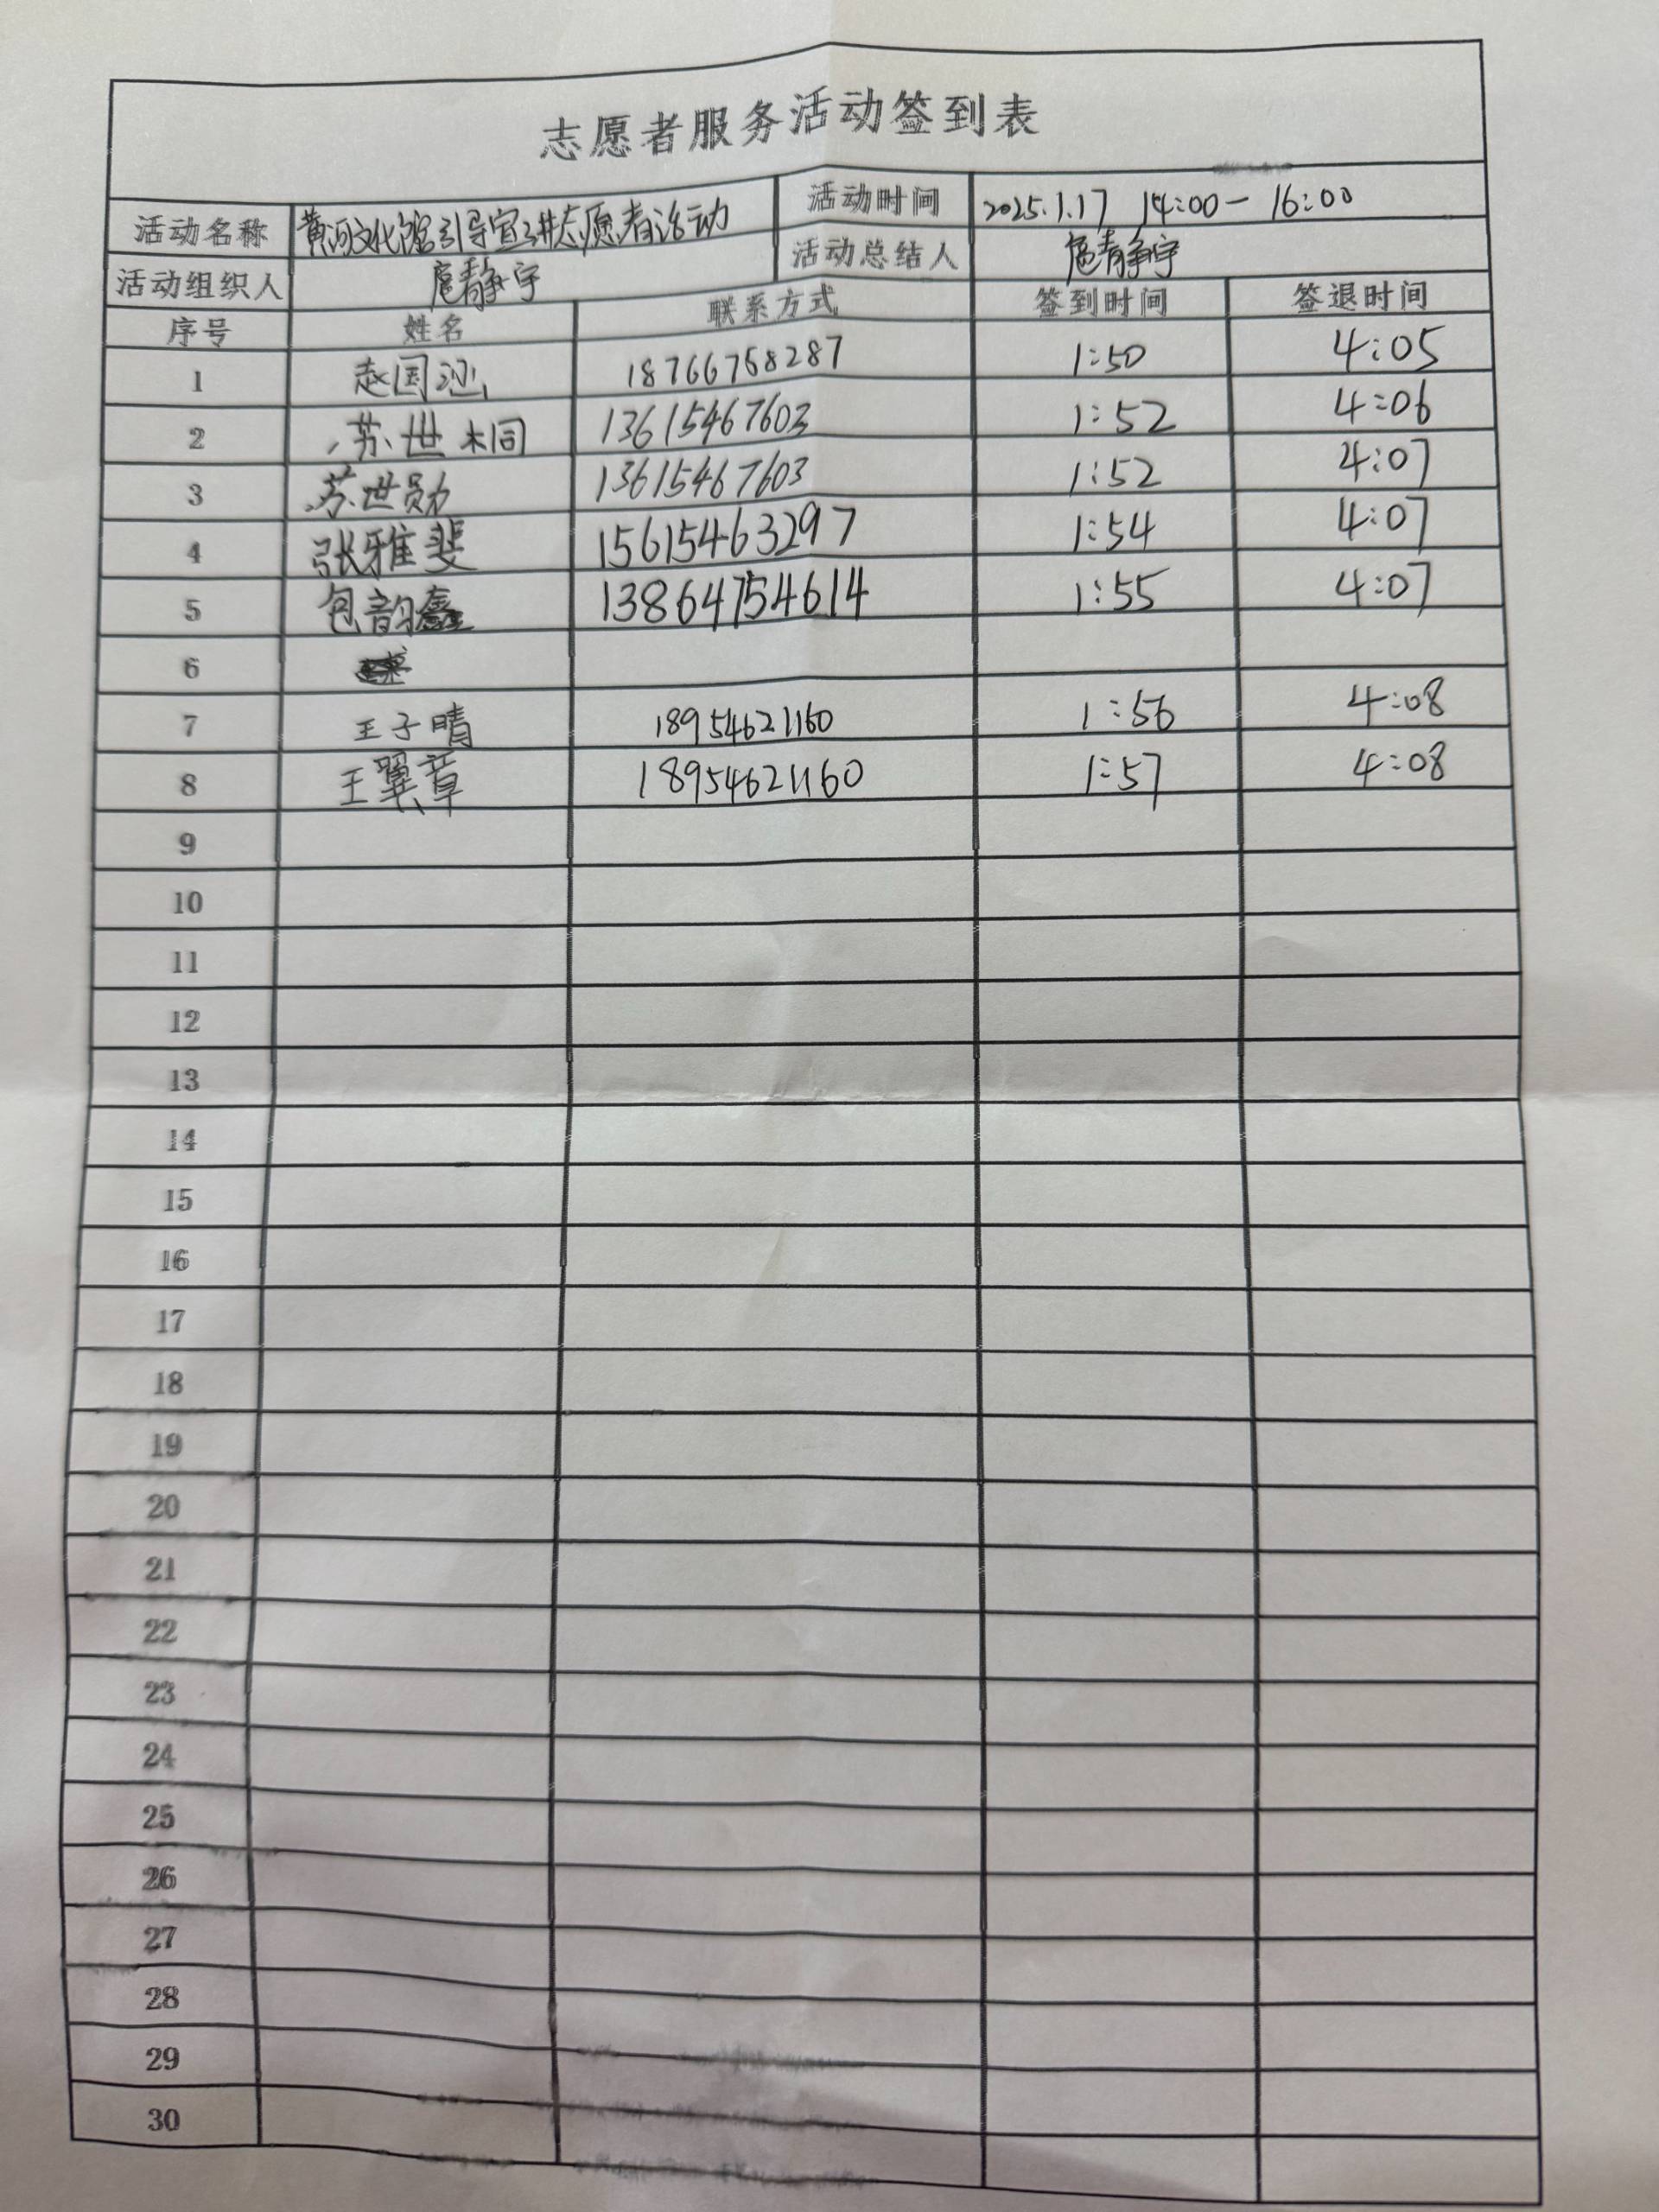 志愿者服务活动签到表
活动名称 黄河文化馆引导宣讲志愿者活动 活动时间 2025.1.17 14:00-16:00
活动组织人 扈静宇 活动总结人 扈静宇
序号 姓名 联系方式 签到时间 签退时间
1 赵国 18766758287 1:50 4:05
2 苏世桐 13615467603 1:52 4:06
3 苏世勋 13615467603 1:52 4:07
4 张雅斐 15615463297 1:54 4:07
5 包韵鑫 13864754614 1:55 4:07
6
7 王子晴 18954621160 1:56 4:08
8 王翼章 18954621160 1:57 4:08
9
10
11
12
13
14
15
16
17
18
19
20
21
22
23
24
25
26
27
28
29
30